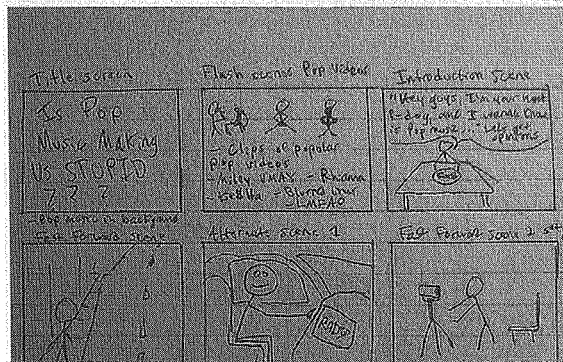 Title screen
Is Pop
Music Making
Us STUPID
? ? ?
Flash scenes Pop videos
- Clips of popular
Pop videos
- Miley VMAs - Rhianna
- LMFAO
Introduction Scene
"Hey guys, I'm your host
and I wanna know
is Pop music ... Let's get
opinions
Fast Forward Scene
Alternate Scene 1
RADIO
Fast Forward Scene 2